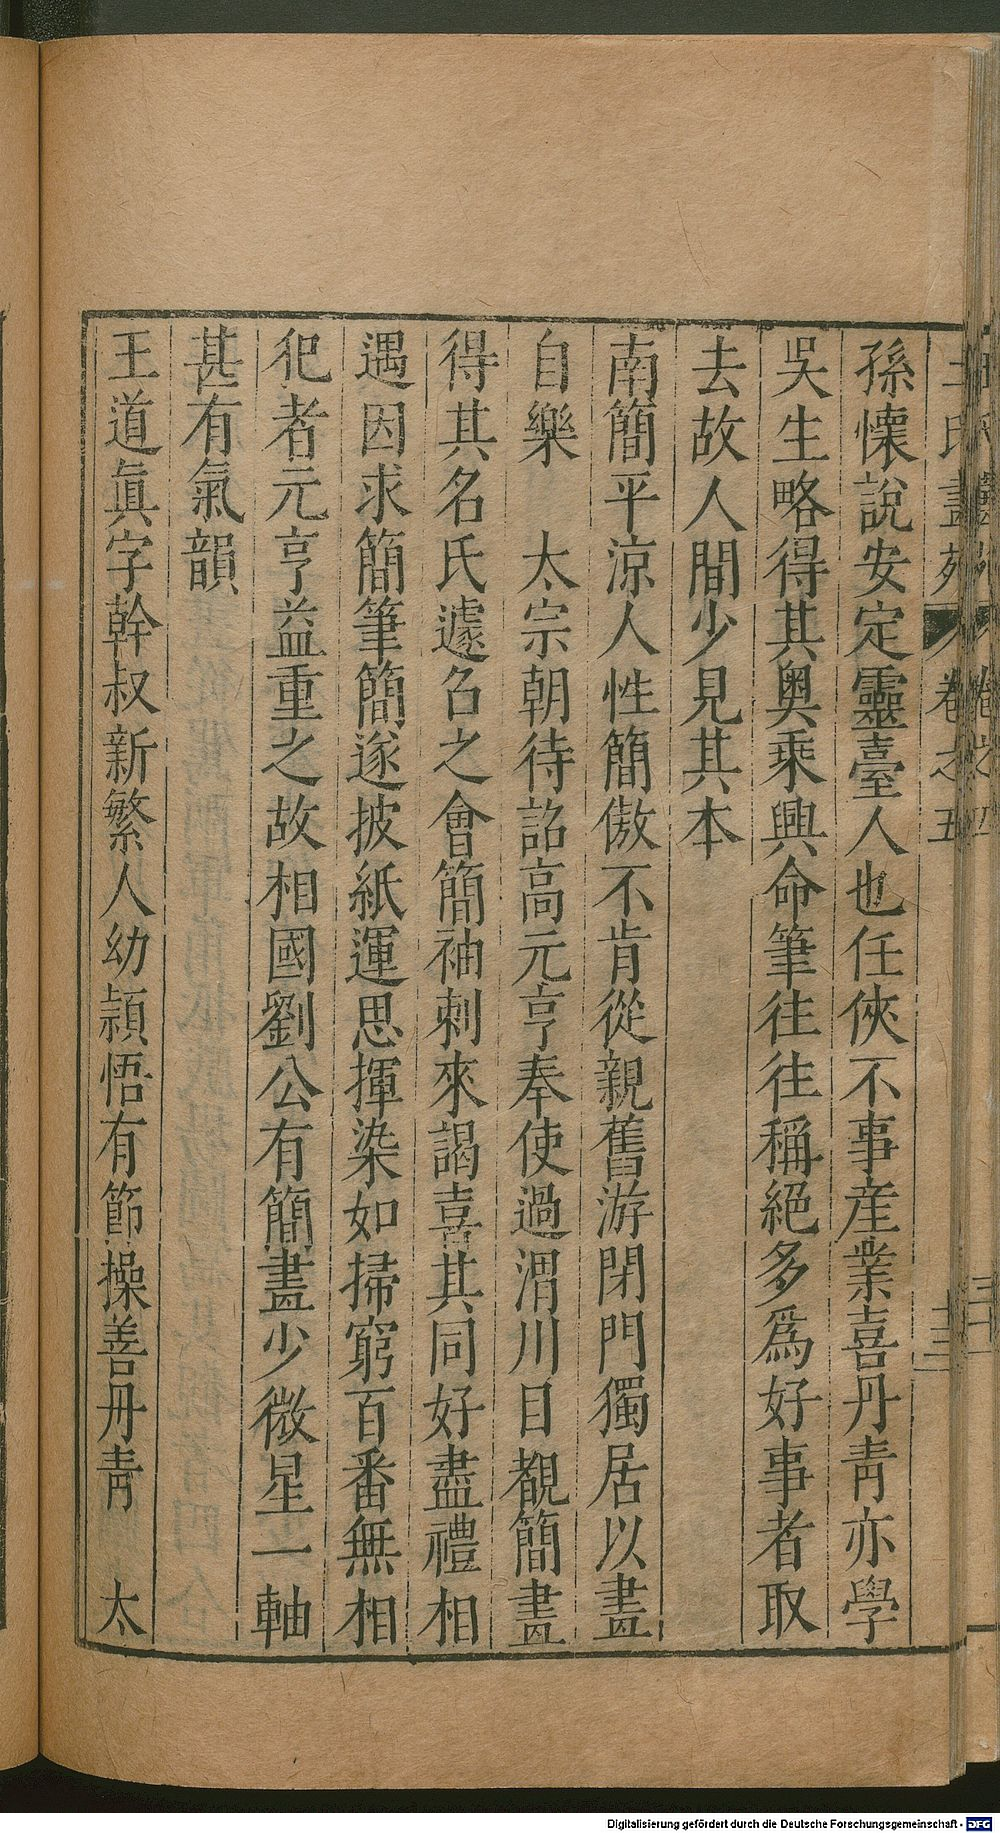 孫懷說安定靈臺人也任俠不事産業喜丹靑亦學
吳生略得其奥乘興命筆往往稱絕多爲好事者取
去故人間少見其本
南簡平涼人性簡傲不肯從親舊游閉門獨居以畫
自樂　太宗朝待詔高元亨奉使過渭川目覩簡畫
得其名氏遽召之會簡袖刺來謁喜其同好盡禮相
遇因求簡筆簡遂披紙運思揮染如掃窮百番無相
犯者元亨益重之故相國劉公有簡畫少微星一軸
甚有氣韻
王道眞字幹叔新繁人幼頴悟有節操善丹靑　太
氏畫苑　卷之五
十三
Digitalisierung gefördert durch die Deutsche Forschungsgemeinschaft - DFG